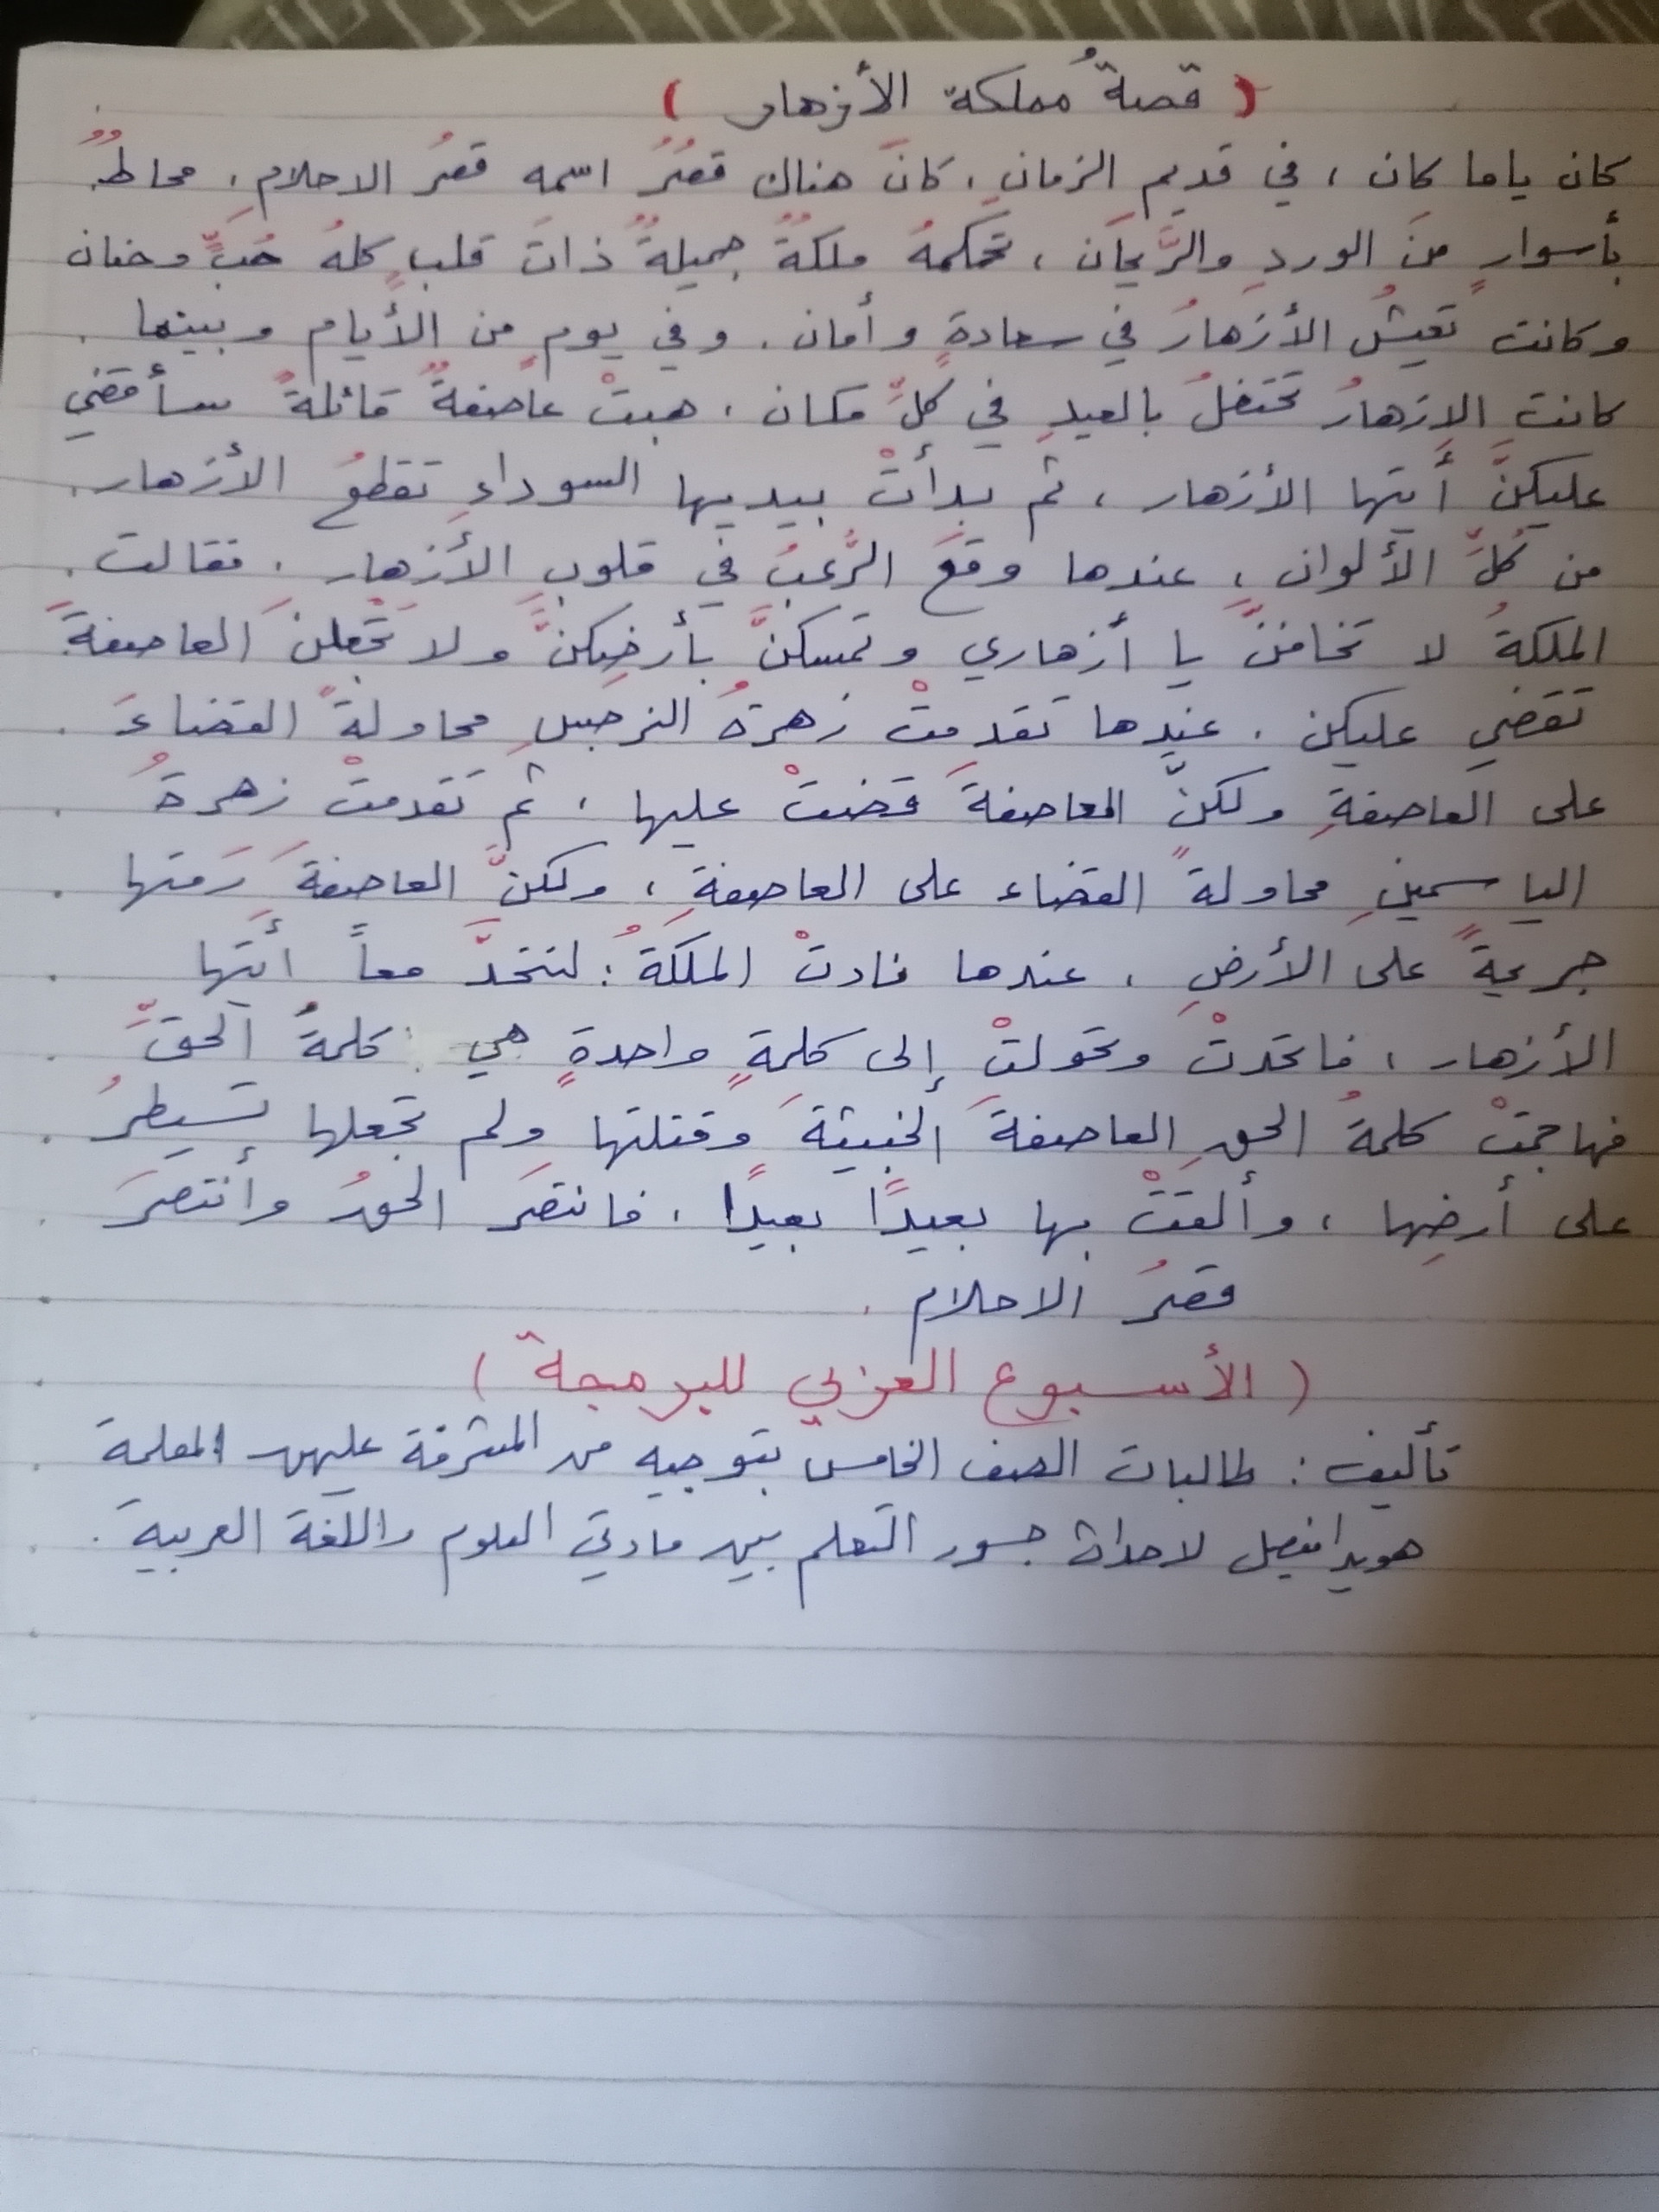 ( قصةُ مملكة الأزهار )
كان ياما كان ، في قديم الزمانِ ، كانَ هناك قصرٌ اسمه قصرُ الاحلامِ ، محاطٌ
بأسوارٍ منَ الوردِ والرَّيحَان ، تحكمهُ ملكةٌ جميلةٌ ذاتَ قلبٍ كلهُ حُبٍّ وحنان
وكانت تعيشُ الأزهارُ في سعادةٍ وأمان . وفي يومٍ من الأيام وبينما
كانت الازهارُ تحتفلُ بالعيدِ في كلِّ مكان ، هبتْ عاصفةٌ قائلةً سأقضي
عليكنَّ أيتها الأزهار ، ثم بدأتْ بيديها السوداءِ تقطعُ الأزهار
من كُلِّ الألوان ، عندها وقعَ الرُّعبُ في قلوبِ الأزهارِ ، فقالت
الملكةُ لا تخافنَّ يا أزهاري وتمسكنَّ بأرضِكنَّ ولا تجْعلنَ العاصفةَ
تقضي عليكن . عندها تقدمتْ زهرةُ النرجسِ محاولةً القضاءَ
على العاصفةِ ولكنَّ العاصفةَ قضتْ عليها ، ثم تَقدمتْ زهرةُ
الياسمينِ محاولةً القضاء على العاصفةِ ، ولكنَّ العاصفةَ رَمتها
جريحةً على الأرضِ ، عندها نادتْ الملكةُ : لنتحدَّ معاً أيَّتها
الأزهار ، فاتحدتْ وتحولتْ إلى كلمةٍ واحدةٍ هي : كلمةُ الحقِّ
فهاجمتْ كلمةُ الحقِ العاصفةَ الخبيثةَ وَقتلتها ولم تجعلها تسَيطرُ
على أرضِها ، وألقتْ بها بعيدًا بعيدًا ، فانتصَر الحقُ وأنتصرَ
قصرُ الاحلام .
( الأسبوع العربي للبرمجة )
تأليف : طالبات الصف الخامس بتوجيه من المشرفة عليهن المعلمة
هويدا فيصل لاحداث جسور التعلم بين مادتي العلوم واللغة العربية .